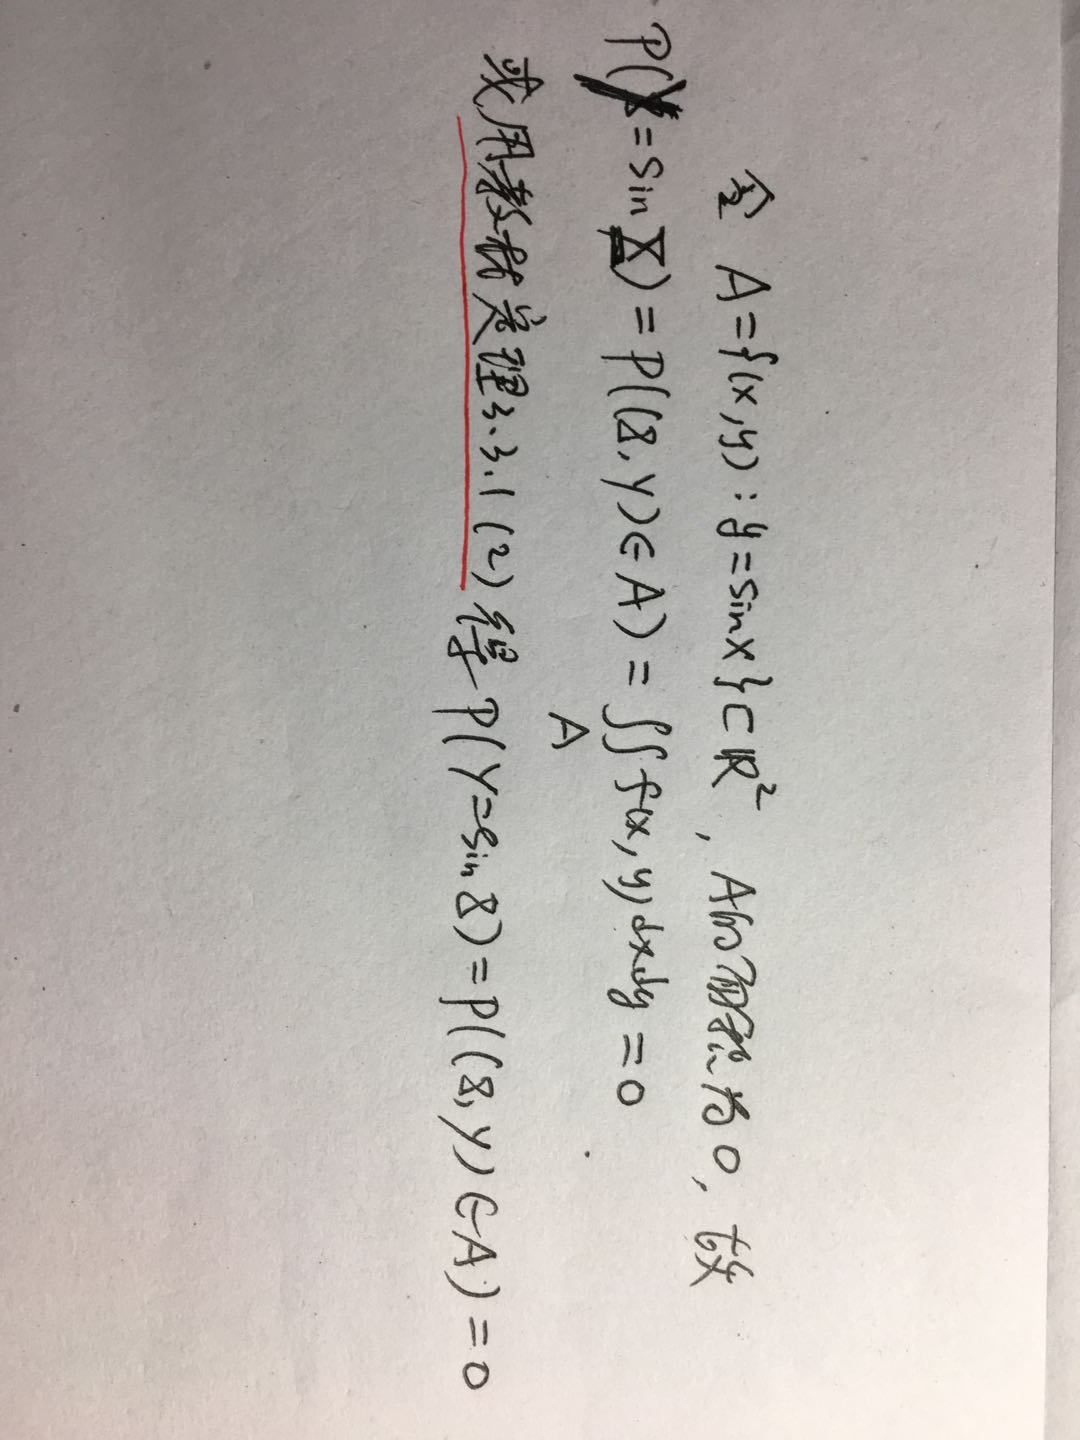 令 A={(x,y):y=sinx}⊂R², A的面积为0, 故
P(Y=sin X)=P((X,Y)∈A)=∬f(x,y)dxdy=0.
A
或用教材定理3.3.1(2)得 P(Y=sin X)=P((X,Y)∈A)=0